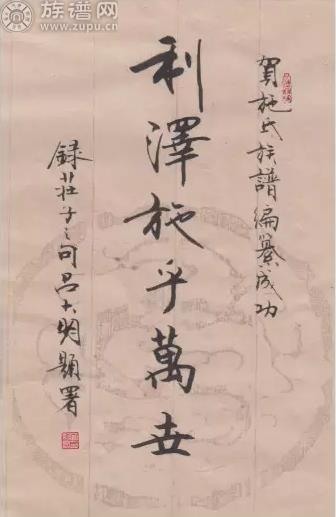 族谱网
www.zupu.cn
賀施氏族譜編纂成功
利澤施乎萬世
錄莊子之句吕大明題署